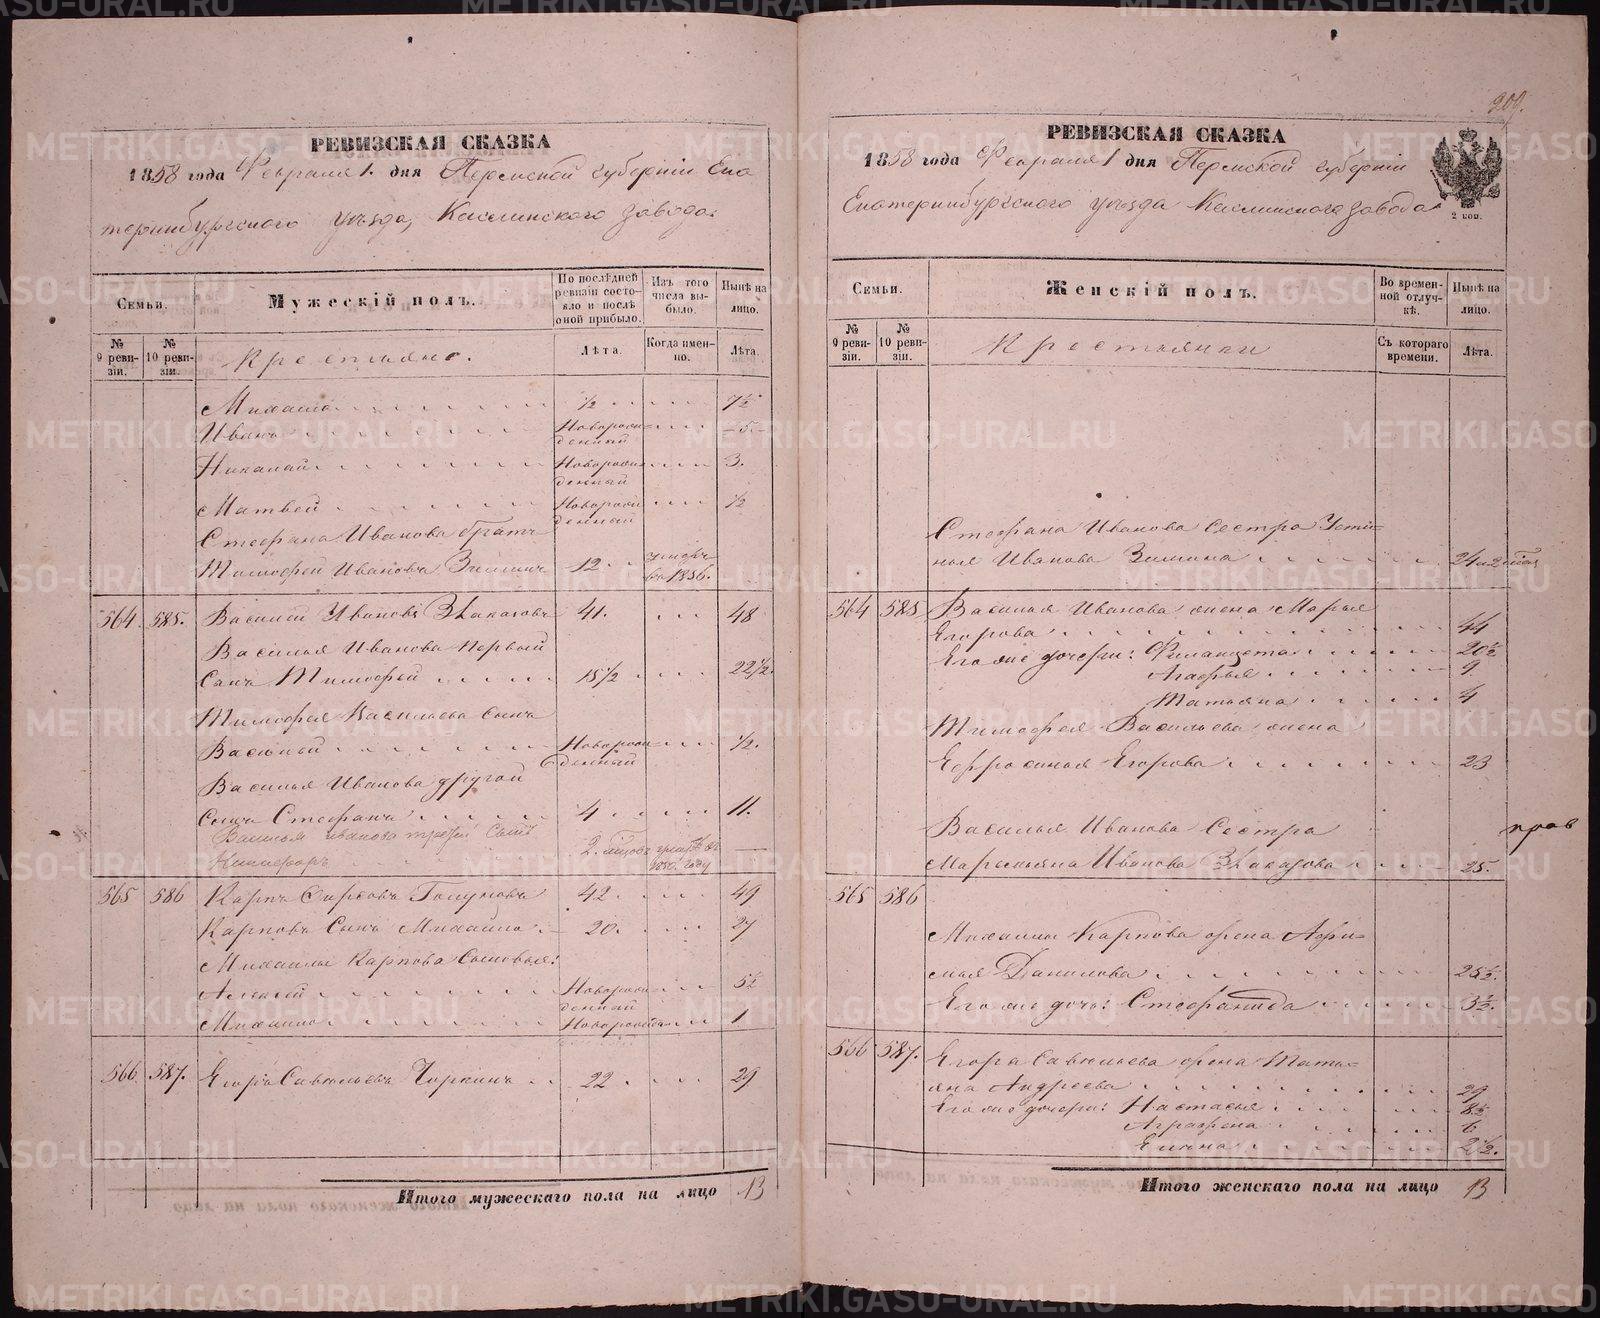 РЕВИЗСКАЯ СКАЗКА
1858 года Февраля 1. дня Пермской губерніи Ека
теринбургского уѣзда, Каслинского завода.
Семьи.
Мужескій полъ.
По послѣдней ревизіи состояло и послѣ оной прибыло.
Изъ того числа выбыло.
Нынѣ на лицо.
№ 9 ревизіи.
№ 10 ревизіи.
Крестьяне.
Лѣта.
Когда именно.
Лѣта.
Михаило ½ 7½
Иванъ Новорожденный 5
Николай Новорожденный 3.
Матвей Новорожденный ½
Стефана Иванова братъ
Тимофей Ивановъ Зиминъ 12 умеръ въ 1856.
564 585. Василий Ивановъ 41. 48
Василья Иванова первый
Сынъ Тимофей 15½ 22½.
Тимофея Васильева сынъ
Василий Новорожденный ½.
Василья Иванова другой
Сынъ Стефанъ 4 11.
Василья Иванова третий сынъ
Никифоръ 2. году
565 586 Карпъ 42 49
Карповъ Сынъ Михаило 20. 27
Михаилы Карпова Сыновья:
Алексей Новорожденный 5½
Михаило Новорожден 1
566 587. Егоръ Савельевъ 22 29
Итого мужескаго пола на лицо 13
209.
РЕВИЗСКАЯ СКАЗКА
1858 года Февраля 1 дня Пермской губерніи
Екатеринбургского уѣзда Каслинского завода
2 коп.
Семьи.
Женскій полъ.
Во временной отлучкѣ.
Нынѣ на лицо.
№ 9 ревизіи.
№ 10 ревизіи.
Крестьянки
Съ котораго времени.
Лѣта.
Стефана Иванова Сестра Усти=
нья Иванова Зимина 24
564 585 Василья Иванова жена Марья
Егорова 44
Его же дочери: 20½
Агафья 9
Татьяна 4
Тимофея Васильева жена
Ефросинья Егорова 23
Василья Иванова Сестра
Маремьяна Иванова 25.
565 586
Михаилы Карпова жена Афи=
мья Данилова 25½.
Его же дочь: Стефанида 3½.
566 587. Егора Савельева жена Тать=
яна Андреева 29
Его же дочери: Настасья 8½
Аграфена 6
2½.
Итого женскаго пола на лицо 13
METRIKI.GASO-URAL.RU